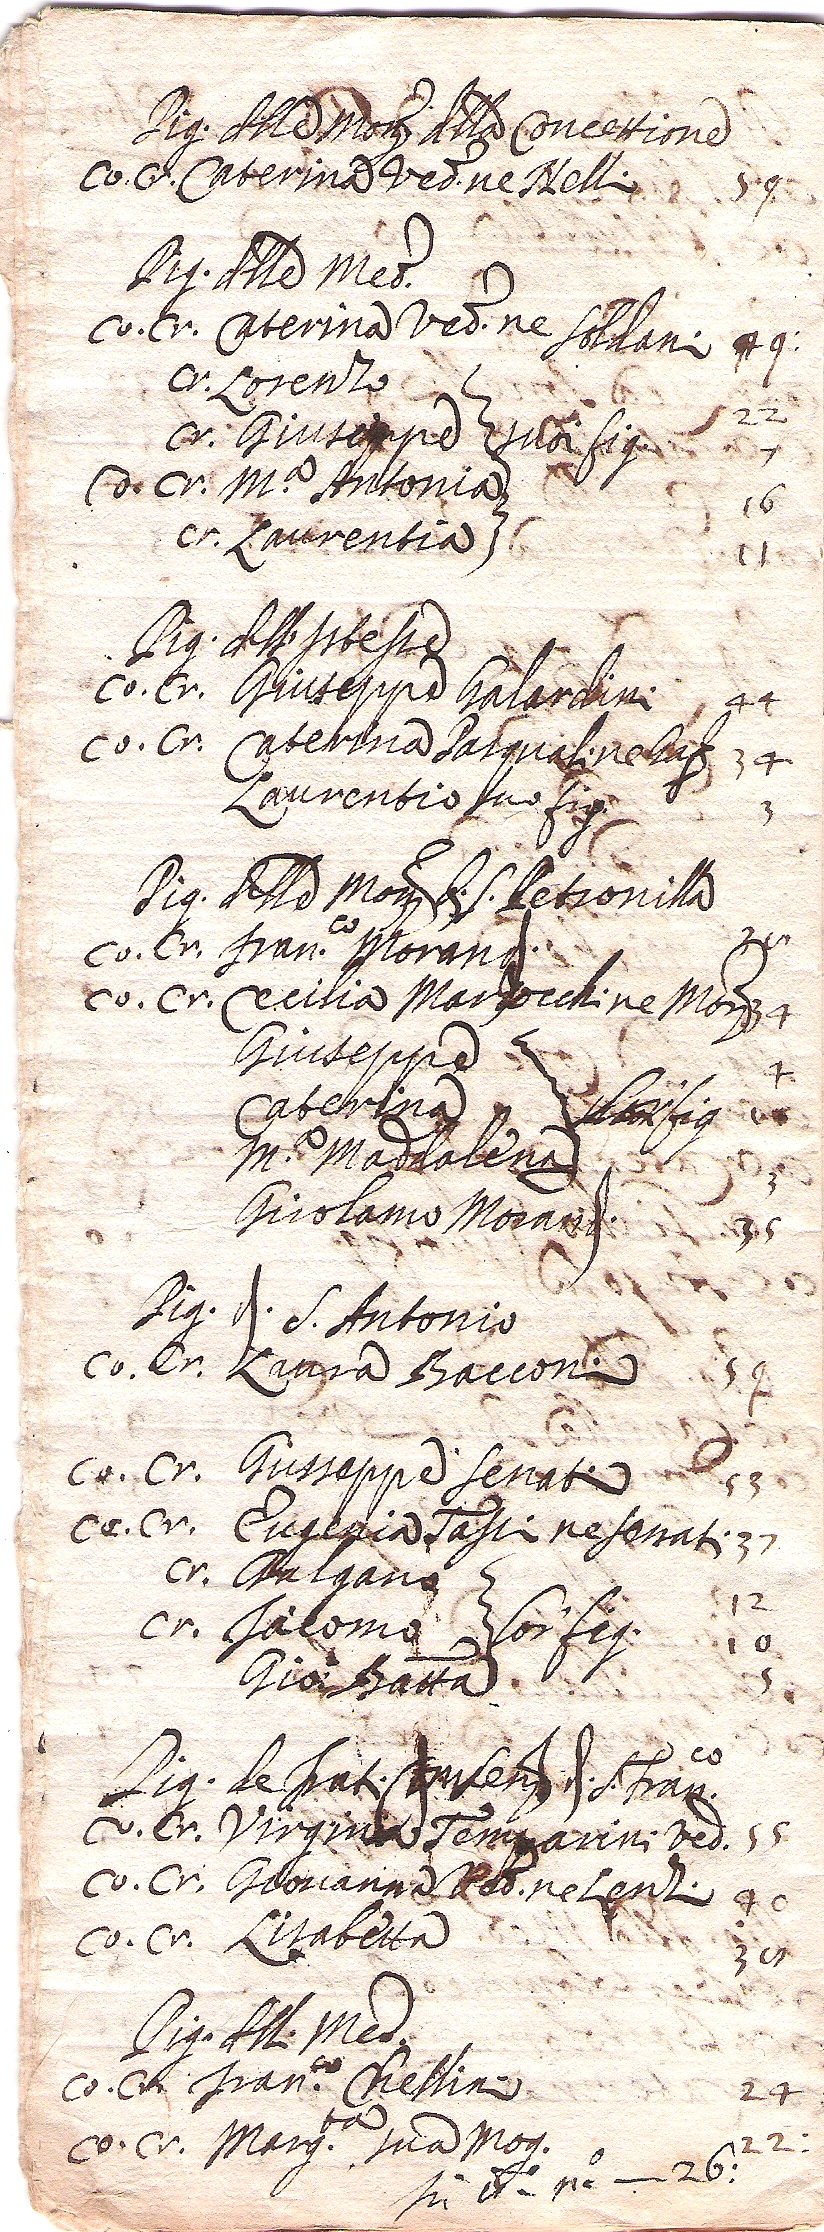 Pig. delle Mon. della Concettione
co. cr. Caterina Ved. ne Nelli 59
Pig. delle Med.
co. cr. Caterina Ved. ne Soldani 49:
cr. Lorenzo 22
cr. Giuseppe suoi fig. 7
co. cr. M.a Antonia 16
cr. Laurentia 11
Pig. dell. istesse
co. cr. Giuseppe Galardini 44
co. cr. Caterina Pasquali ne 34
Laurentio suo fig. 3
Pig. delle Mon. di S. Petronilla
co. cr. Fran.co Morandi
co. cr. Cecilia Marzocchi ne Mor. 34
Giuseppe 4
Caterina fig
M.a Maddalena 3
Girolamo Morandi. 35
Pig. di. S. Antonio
co. cr. Laura Bacconi 59
co. cr. Giusseppe Senati 53
co. cr. Eugenia Tassi ne Senati 37
cr. Galgano 12
cr. Jacomo lor fig. 10
Gio: Batta 5
Pig. de frat. Conven. di. S. Fran.co
co. cr. Virginia Temparini ved. 55
co. cr. Giovanna Ved. ne Lenzi 40
co. cr. Lisabetta
Pig. dell. Med.
co. cr. Fran.co Chellini 24
co. cr. Marg.ta sua Mog. 22:
n.o — 26: